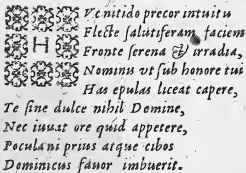 HVc nitido precor intuitu
Flecte ſalutiferam faciem
Fronte ſerena & irradia,
Nominis vt ſub honore tui
Has epulas liceat capere,
Te ſine dulce nihil Domine,
Nec iuuat ore quid appetere,
Pocula ni prius atque cibos
Dominicus fauor imbuerit.